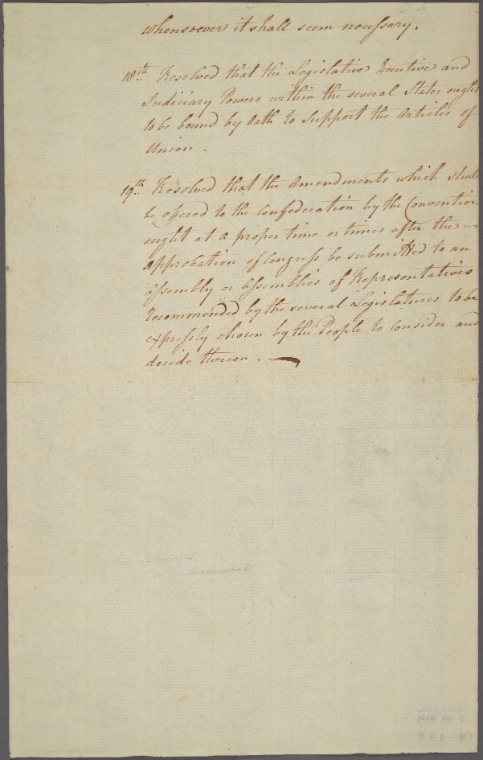 whensoever it shall seem necessary.
18th Resolved that the Legislative Executive and
Judiciary Powers within the several States ought
to be bound by Oath to support the Articles of
Union.
19th Resolved that the Amendments which shall
be offered to the Confederation by the Convention
ought at a proper time or times after the
Approbation of Congress be submitted to an
Assembly or Assemblies of Representatives
recommended by the several Legislatures to be
expressly chosen by the People to consider and
decide thereon.